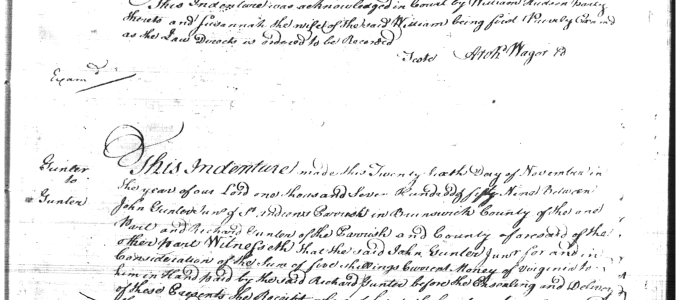 This Indenture was acknowledged in Court by William Hudson party
thereto and Susannah the wife of the said William being first Privily Examd
as the Law Directs is ordered to be Recorded
Teste
Examd
Gunter
to
Gunter
This Indenture made this Twenty Sixth Day of November in
the year of our Lord one thousand Seven Hundred fifty Nine Between
John Gunter Junr of St Andrews Parrish in Brunswick County of the one
Part and Richard Gunter of the Parrish and County aforesaid of the
other part Witnesseth that the said John Gunter Junr for and in
Consideration of the Sum of five Shillings Current Money of Virginia to
him in Hand paid by the said Richard Gunter before the Ensealing and Delivery
of these Presents the Receipt